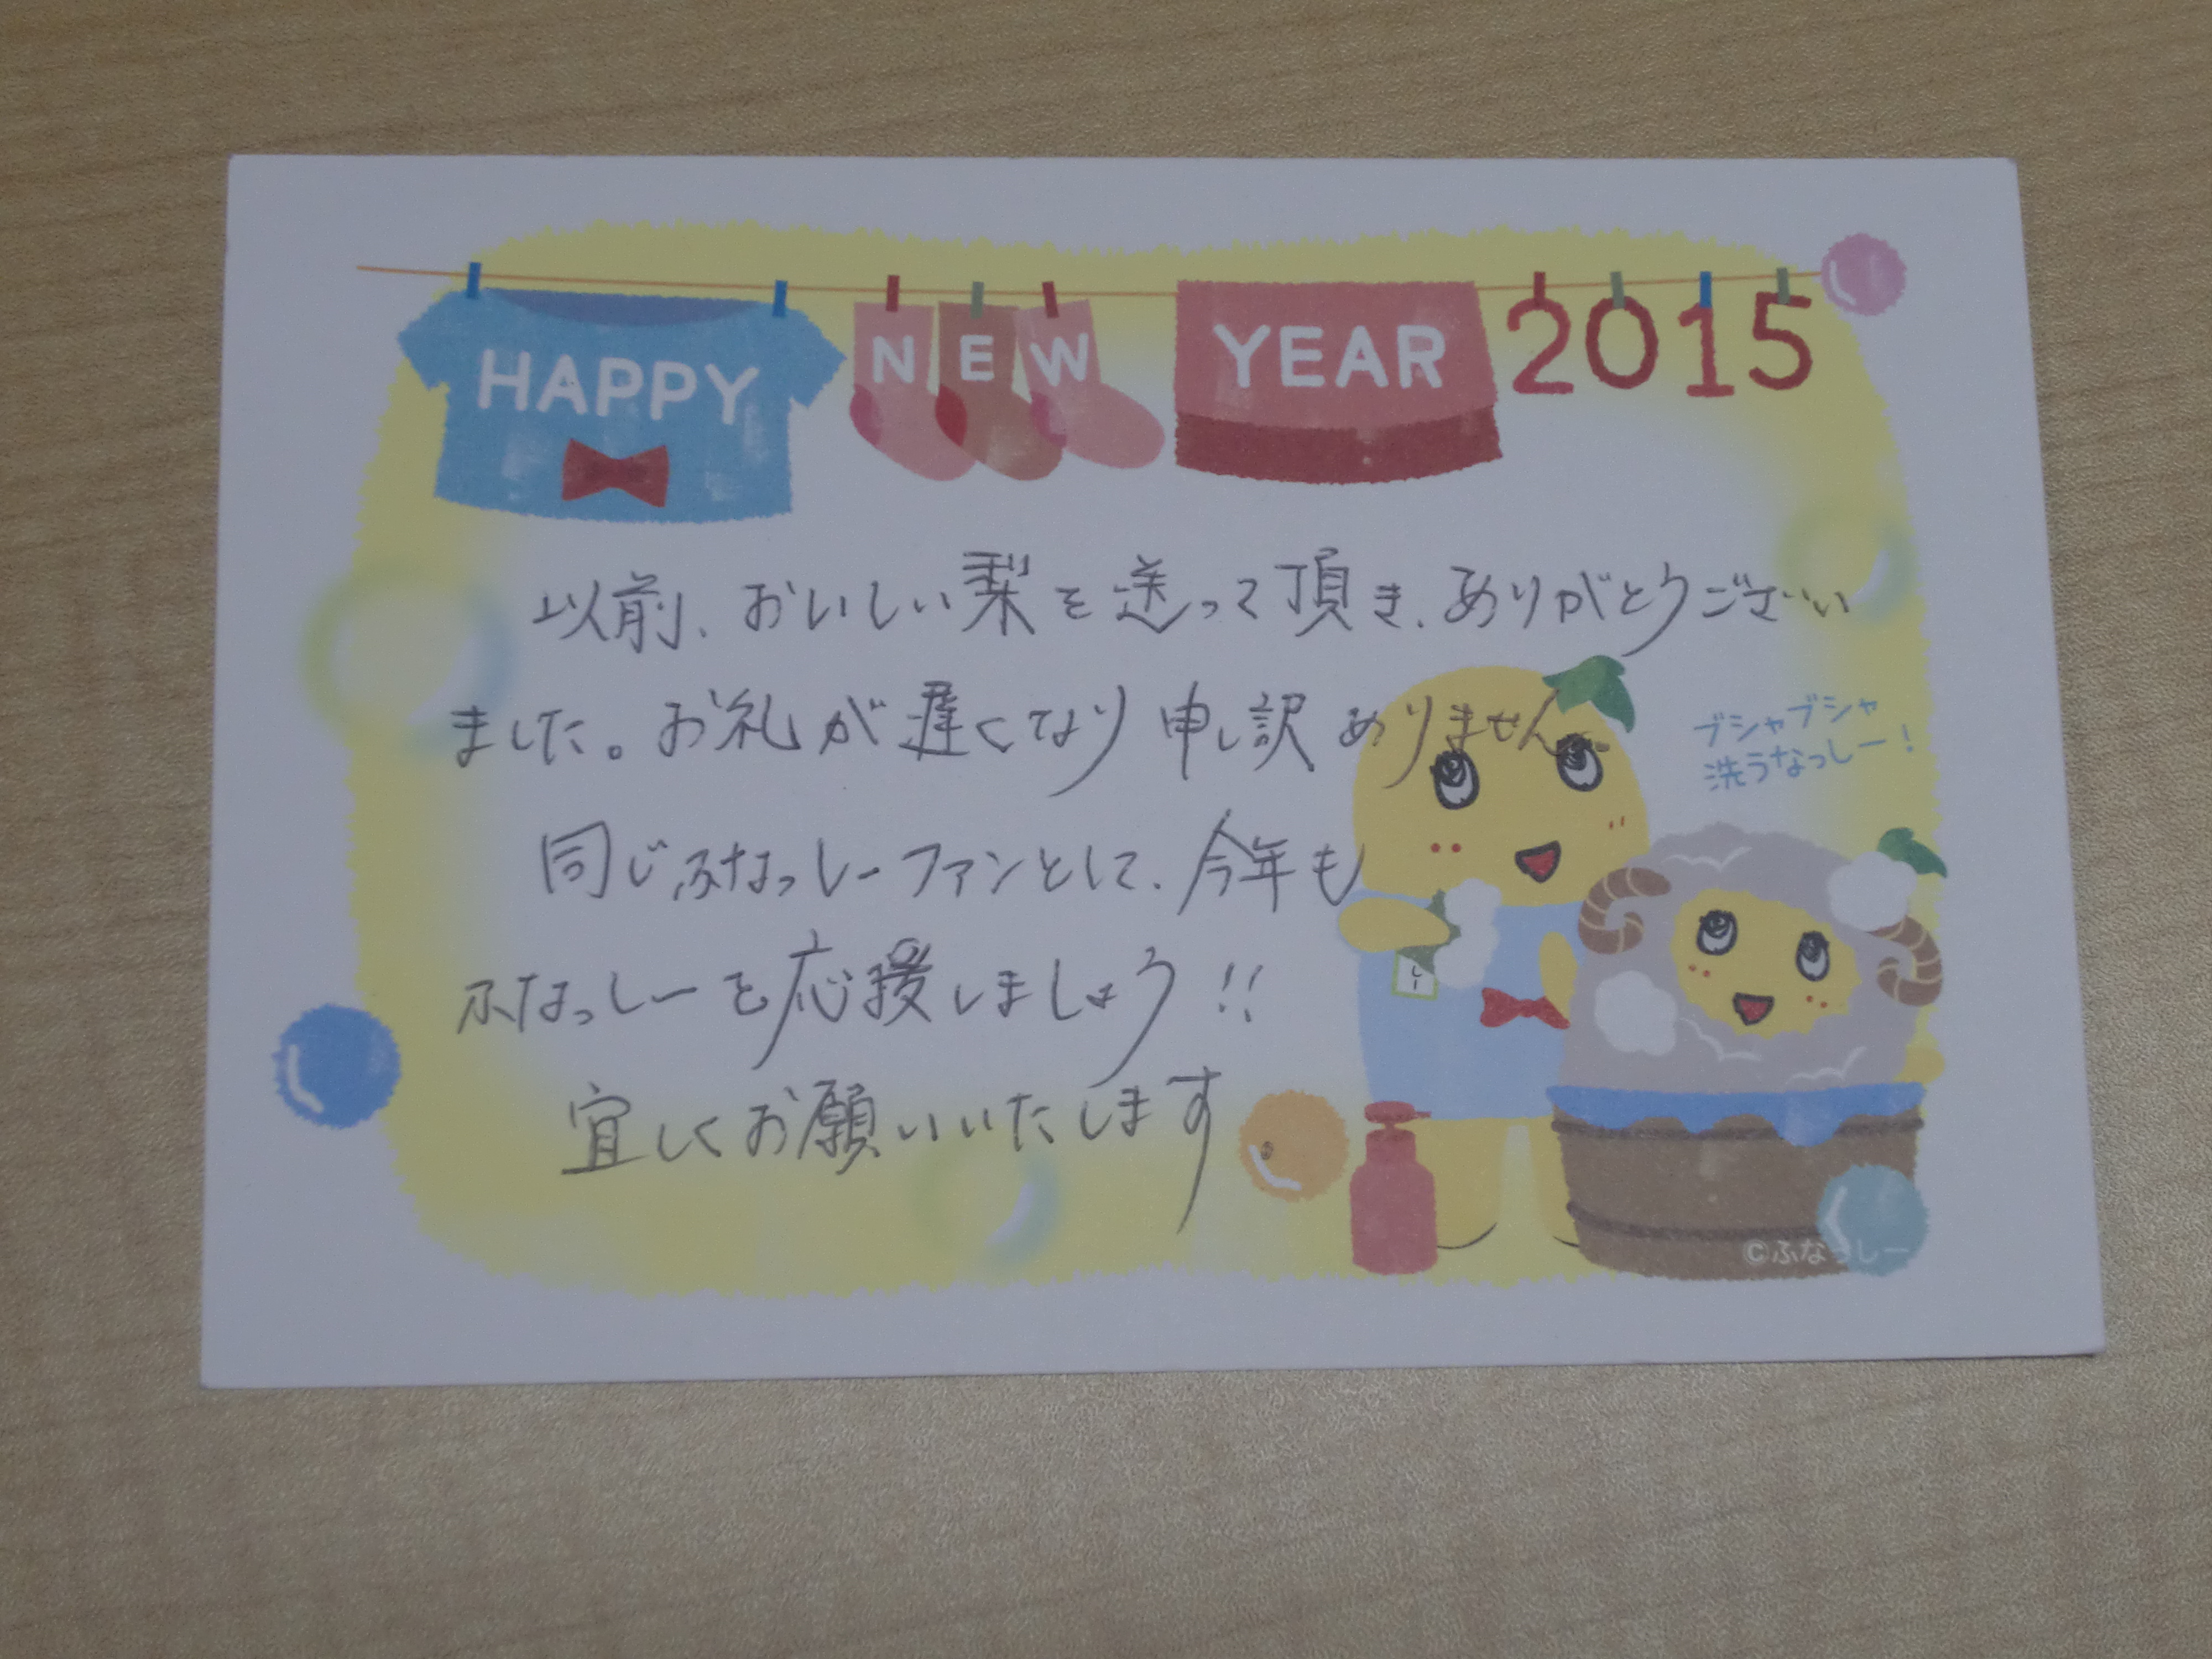 HAPPY NEW YEAR 2015
以前、おいしい梨を送って頂き、ありがとうござい
ました。お礼が遅くなり申し訳ありません。
ブシャブシャ
洗うなっしー!
同じふなっしーファンとして、今年も
ふなっしーを応援しましょう!!
宜しくお願いいたします
©ふなっしー